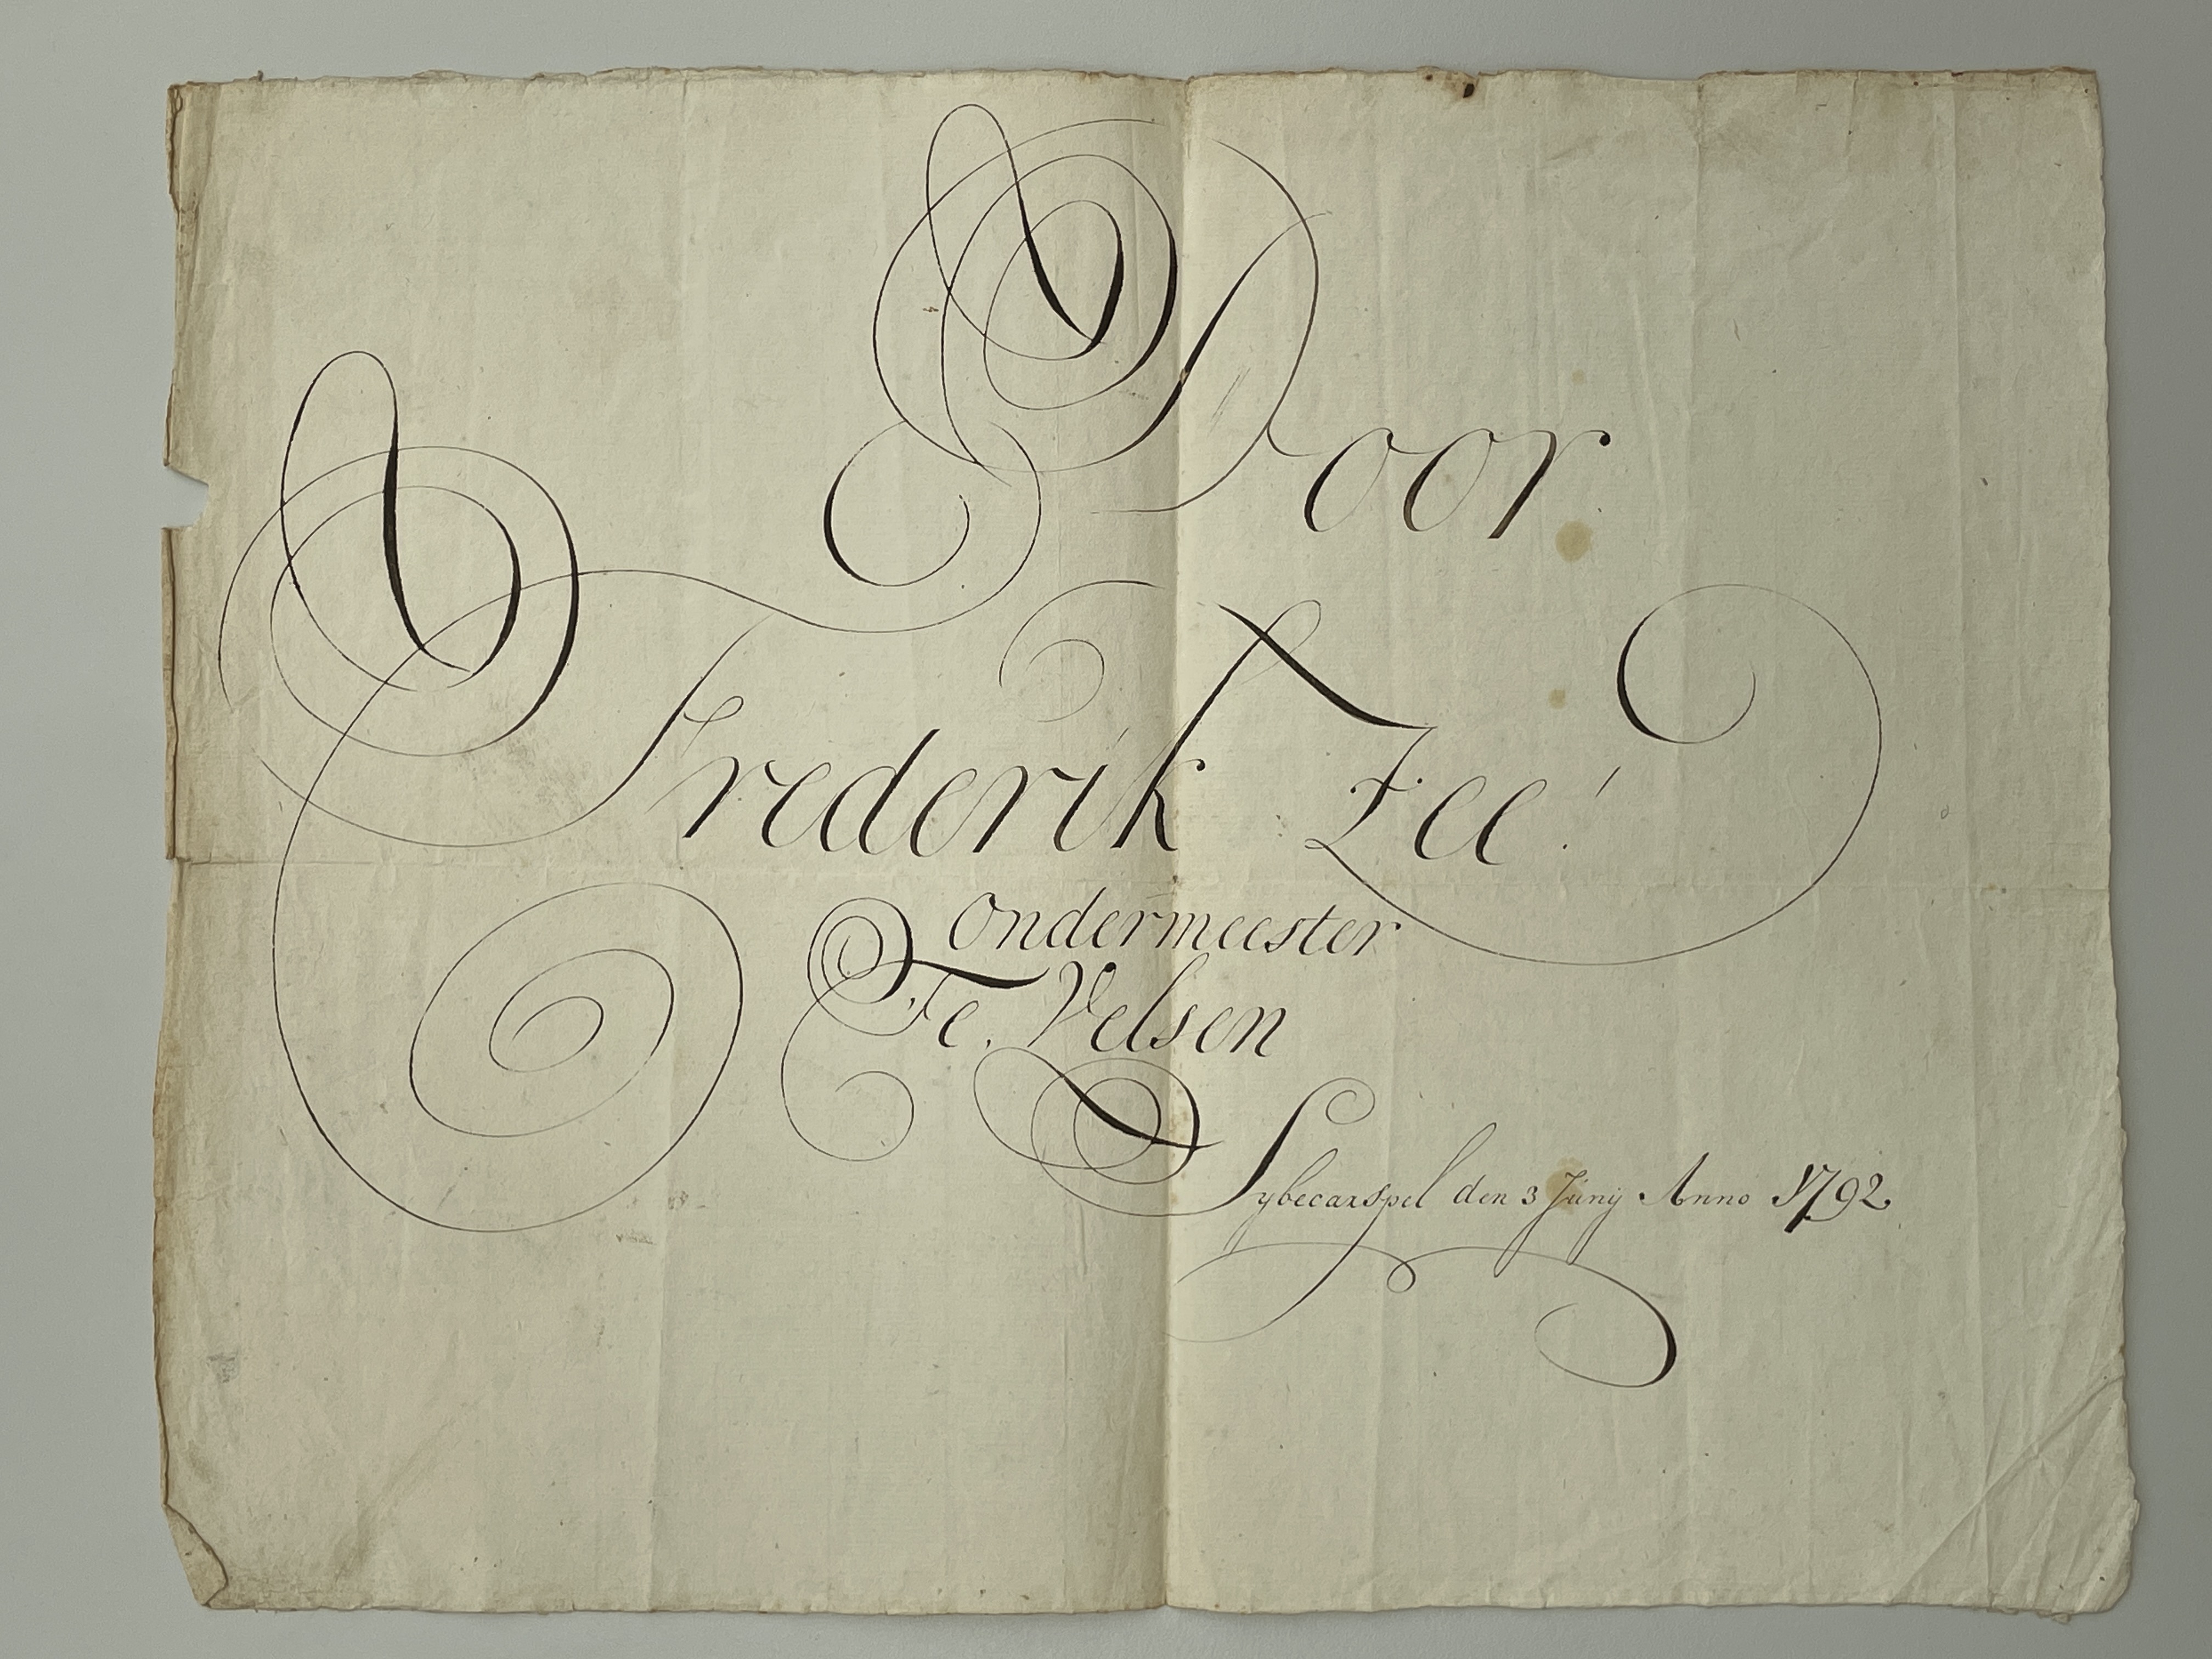 Door
Frederik Zee!
ondermeester
Te. Velsen
Sybecarspel den 3 Junij Anno 1792